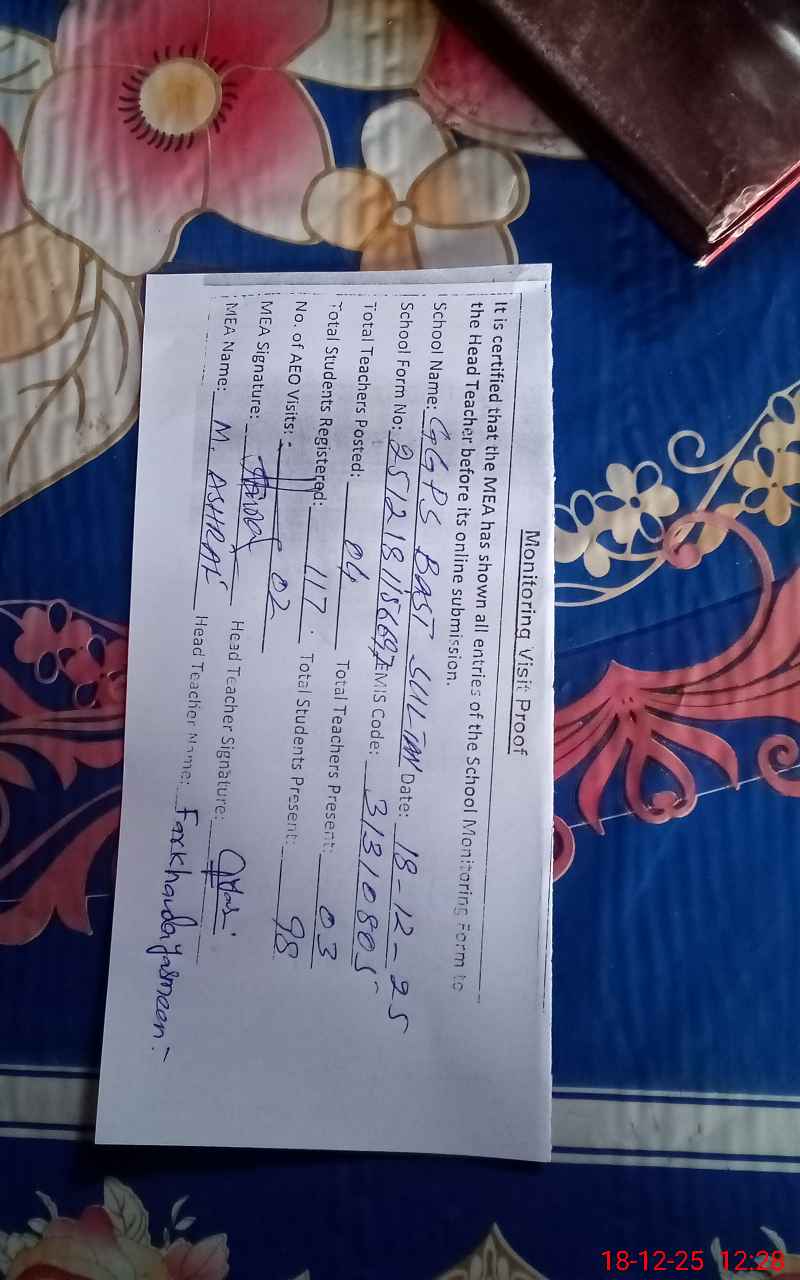 Monitoring Visit Proof
It is certified that the MEA has shown all entries of the School Monitoring Form to
the Head Teacher before its online submission.
School Name: GGPS BAST Date: 18-12-25
School Form No: EMIS Code: 31310805
Total Teachers Posted: 04 Total Teachers Present: 03
Total Students Registered: 117. Total Students Present: 98
No. of AEO Visits: - 02
MEA Signature: Head Teacher Signature:
MEA Name: M. ASHRAF Head Teacher Name: Farkhanda Yasmeen:-
18-12-25 12:28